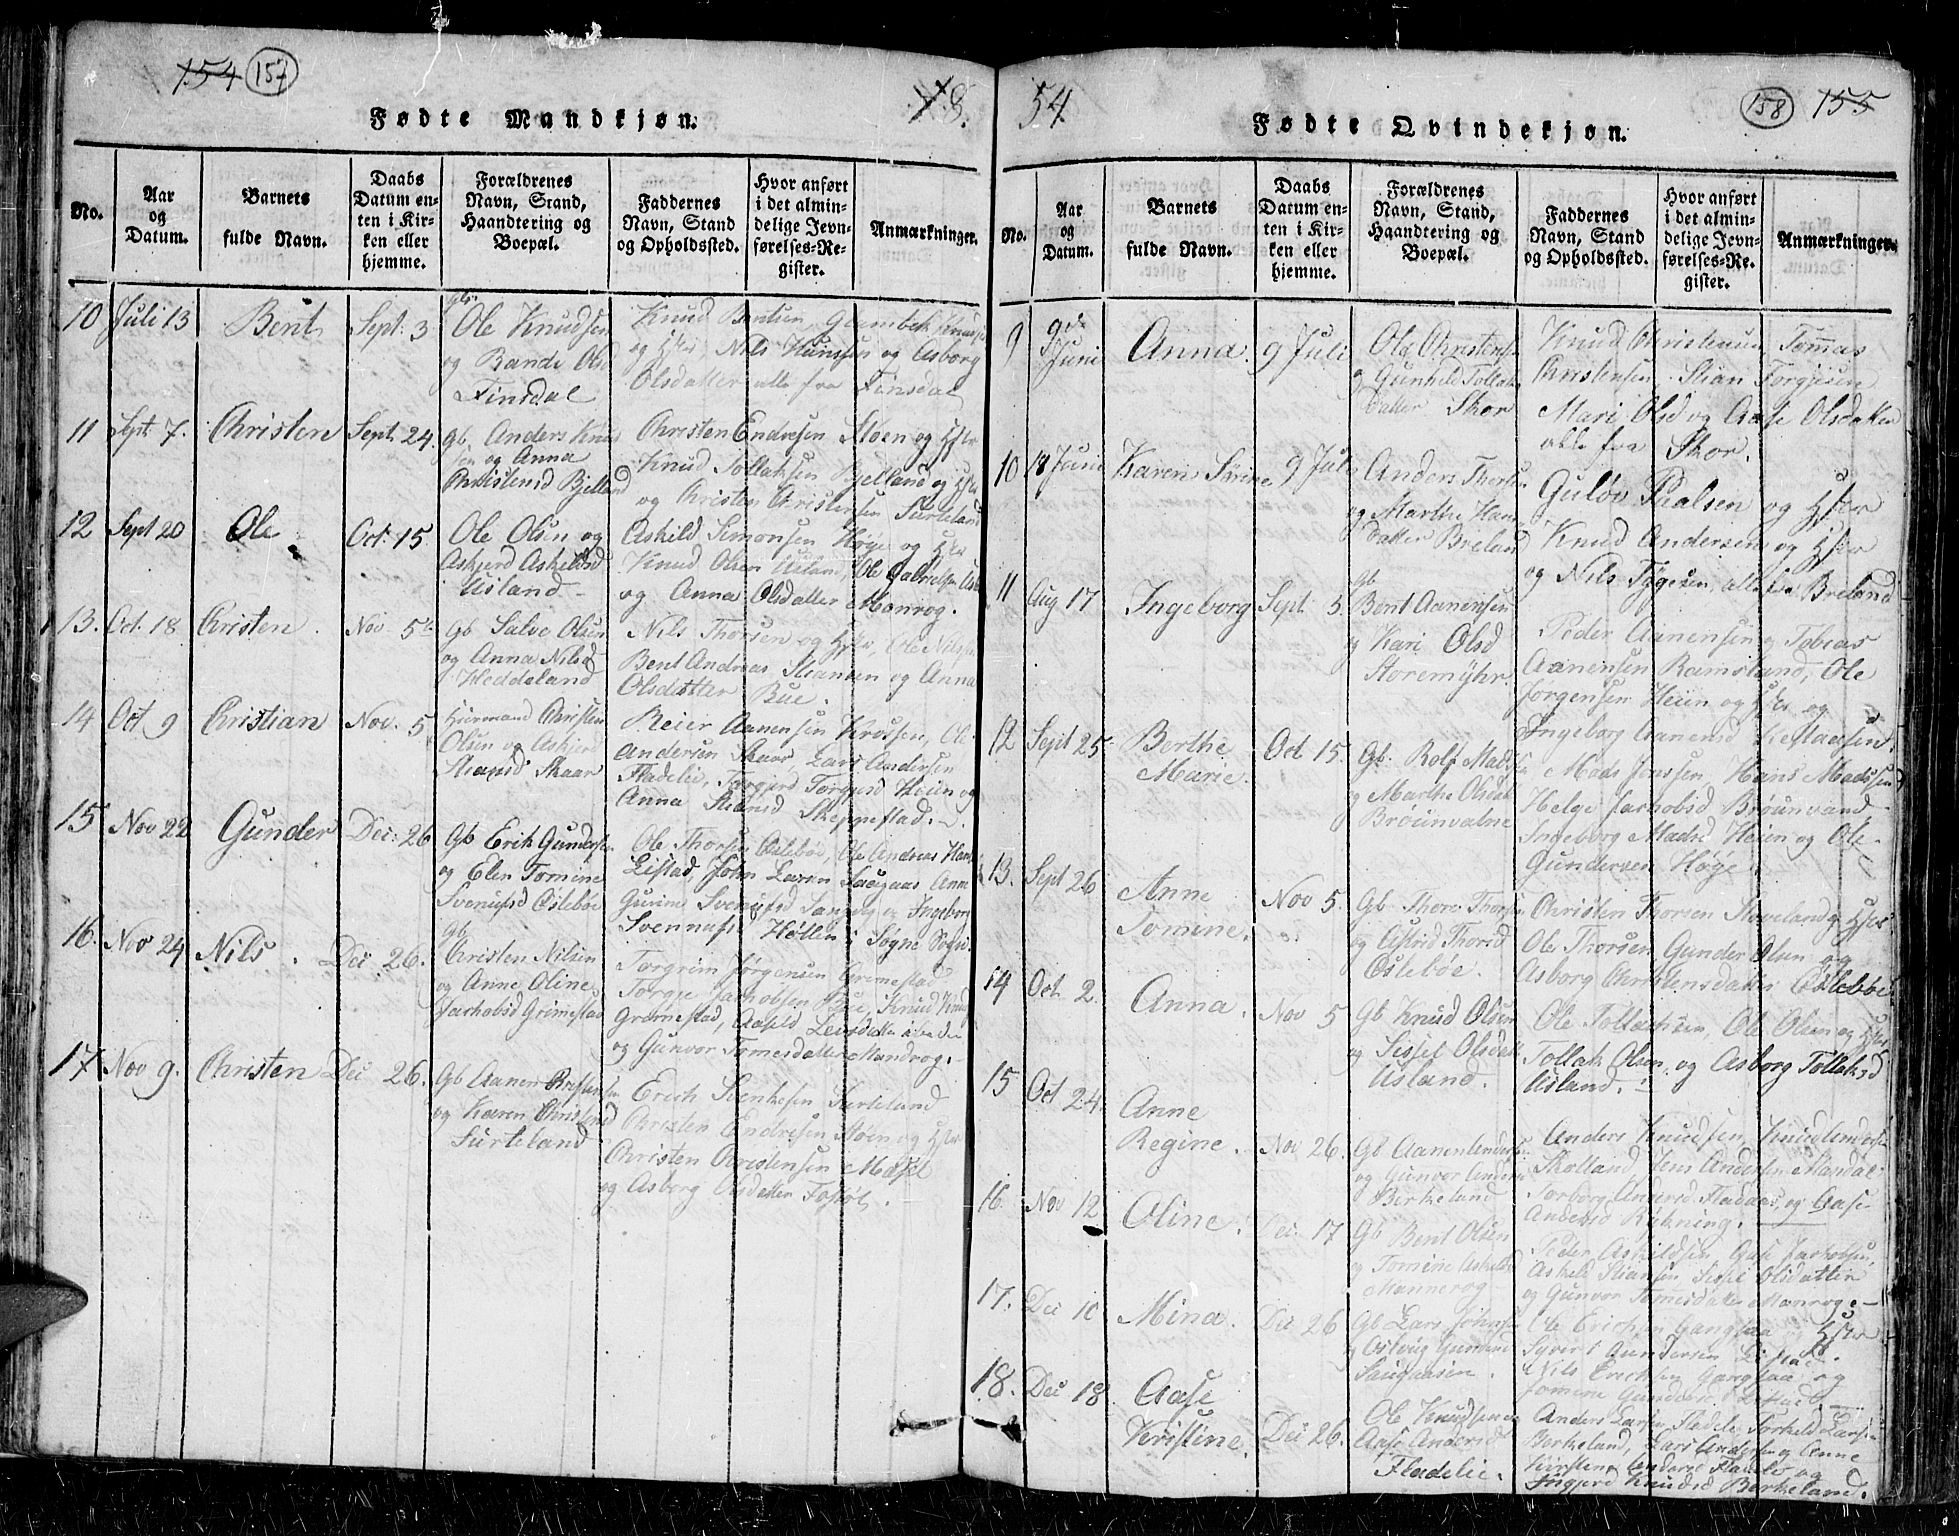 154 157
18.
Fødte Mandkjøn.
No.
Aar og Datum.
Barnets fulde Navn.
Daabs Datum enten i Kirken eller hjemme.
Forældrenes Navn, Stand, Haandtering og Boepæl.
Faddernes Navn, Stand og Opholdssted.
Hvor anført i det almindelige Jevnførelses-Register.
Anmærkninger.
10 Juli 13 Bent Sept: 3
Gb. Ole Knudsen
og Rande Olsd
Finsdal
Knud Bentsen, Knuds
og Hstr, Nils Hansen og Asborg
Olsdatter alle fra Finsdal
11 Sept 7. Christen Sept. 24.
Gb. Anders Knud
sen og Anna
Christensd Bjelland
Christen Endresen Stoen og Hstr
Knud Tollaksen Bjelland og Hstr
og Christen Christensen Surteland
12 Sept 20 Ole Oct. 15.
Ole Olsen og
Askjerd Askeldsd
Usland
Askild Simonsen Høge og Hstr
Knud Olsen Usland, Ole Gabrielsen
og Anna Olsdatter Manrog.
13. Oct. 18 Christen. Nov 5te
Gb Salve Olsen
og Anna Nilsd
Heddeland
Nils Thorsen og Hstr, Ole Nilssen
Bent Andreas Stiansen og Anna
Olsdatter Bue.
14 Oct 9 Christian Nov. 5
Huusmand Christen
Olsen og Askjerd
Stiansd Skaar
Reier Aanensen Krossen, Ole
Andersen Skaar, Lars Andersen
Fladelie, Torgjerd Torgusd Heien og
Anna Stiansd Skeppestad.
15 Nov 22 Gunder Dec: 26
Gb Erik Gunders
og Elen Tomine
Svenufsd Oslebøe
Ole Thorsen Oslebøe, Ole Andreas Hans
Leistad, John Larsen Saugaas Anne
Gurine Svenufsd og Ingeborg
Svennufs Høllen i Søgne Sogn.
16. Nov 24 Nils. Dec. 26.
Gb
Christen Nilsen
og Anne Oline
Jachobsd Grimestad
Torgrim Jørgensen Grimestad
Torgje Jachobsen Bue, Knud Knud
Gremestad,
og Gunvor Tomesdatter Mandrog.
17 Nov 9. Christen Dec 26.
Gb Aanen
og Karen Christensd
Surteland
Erich Svenkesen Surteland
Christen Endresen Støen og Hstr
Christen Christensen
og Asborg Olsdatter
54
158 155
Fødte Qvindekjøn.
No.
Aar og Datum.
Barnets fulde Navn.
Daabs Datum enten i Kirken eller hjemme.
Forældrenes Navn, Stand, Haandtering og Boepæl.
Faddernes Navn, Stand og Opholdssted.
Hvor anført i det almindelige Jevnførelses-Register.
Anmærkninger.
9 9de Juni Anna. 9 Juli
Ole Christensen
og Gunheld Tollaks
datter Skor
Knud Christensen Tomas
Christensen, Stian Torgjesen
Mari Olsd og Aase Olsdatter
alle fra Skor.
10 18 Juni Karen Sirine 9 Juli
Anders Thorsen
og Marthe Hans
datter Breland
Guløv Pialsen og Hstr
Knud Andersen og Hstr
og Nils Tygesen, alle fra Breland
11 Aug 17 Ingeborg Sept 3.
Gb
Bent Aanensen
og Kari Olsd
Storemyhr
Peder Aanensen og Tobias
Aanensen Ramsland, Ole
Jørgensen Heien og Hstr og
Ingeborg Aanensd
12 Sept 25. Berthe Marie. Oct 15.
Gb. Rolf Mads
og Marthe Olsdat
Brøunvatne
Mads Jonssen, Hans Madssen
Helge Jachobsd Brøunvand
Ingeborg Madsd Heien og Ole
Gundersen Høge
13. Sept 26 Anne Tomine. Nov 5.
Gb Thore Thorsen
og Astrid Thorsd
Oslebøe.
Christen Thorsen Stoveland og Hstr
Ole Thorsen Gunder Olsen og
Asborg Christensdatter Oslebøe
14 Oct. 2. Anna. Nov 5
Gb Knud Olsen
og Sissel Olsdatt
Usland.
Ole Tollachsen, Ole Olsen og Hstr
Tollak Olsen og Asborg Tollaksd
Usland.
15 Oct 24. Anne Regine. Nov 26.
Gb Aanen Anders
og Gunvor Anders
Berkeland
Anders Knudsen, Knud Anderse
Skolland, Jens Andersen Mandal
Torborg Andersd Fladaas, og Aase
Andersd Røkning.
16. Nov 12 Oline. Dec. 17
Gb Bent Olsen
og Tomine Askelds
Mannerog
Peder Askildsen, Aase Jachobsen,
Askeld Stiansen, Sissel Olsdatter
og Gunvor Tomesdatter Manrog.
17. Dec 10 Mina. Dec 26
Gb Lars Johns
og Gunders
Saugaasen.
Ole Erichsen Gangsaa og Hstr
Syvert Gundersen Leistad.
Nils Erichsen Gangsaa og
Tomine Gundersd Leistad.
18. Dec 18 Aase Kirstine. Dec 26.
Ole Knudsen og
Aase Andersd
Fladelie.
Anders Larsen Fladelie, Torkeld Larsen
Berkeland, Lars Andersen og Anne
Kirstine Andersd Fladelie og
Ingjerd Knudsd Berkeland.